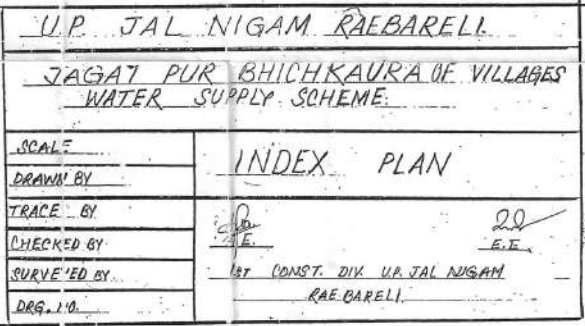 U.P. JAL NIGAM RAEBARELI.
JAGAT PUR BHICHKAURA OF VILLAGES
WATER SUPPLY SCHEME.
SCALE
DRAWN BY
INDEX PLAN
TRACE BY
CHECKED BY
SURVEYED BY
DRG. NO.
E.
E.E.
1ST CONST. DIV. U.P. JAL NIGAM
RAEBARELI.